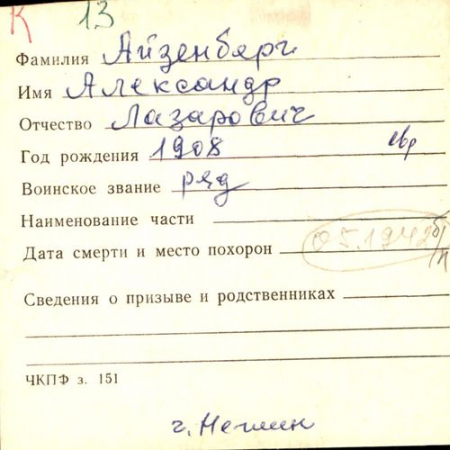 К 13
Фамилия Айзенберг
Имя Александр
Отчество Лазарович
Год рождения 1908 евр
Воинское звание ряд
Наименование части
Дата смерти и место похорон 05.1942 б/п
Сведения о призыве и родственниках
ЧКПФ з. 151
г. Нежин